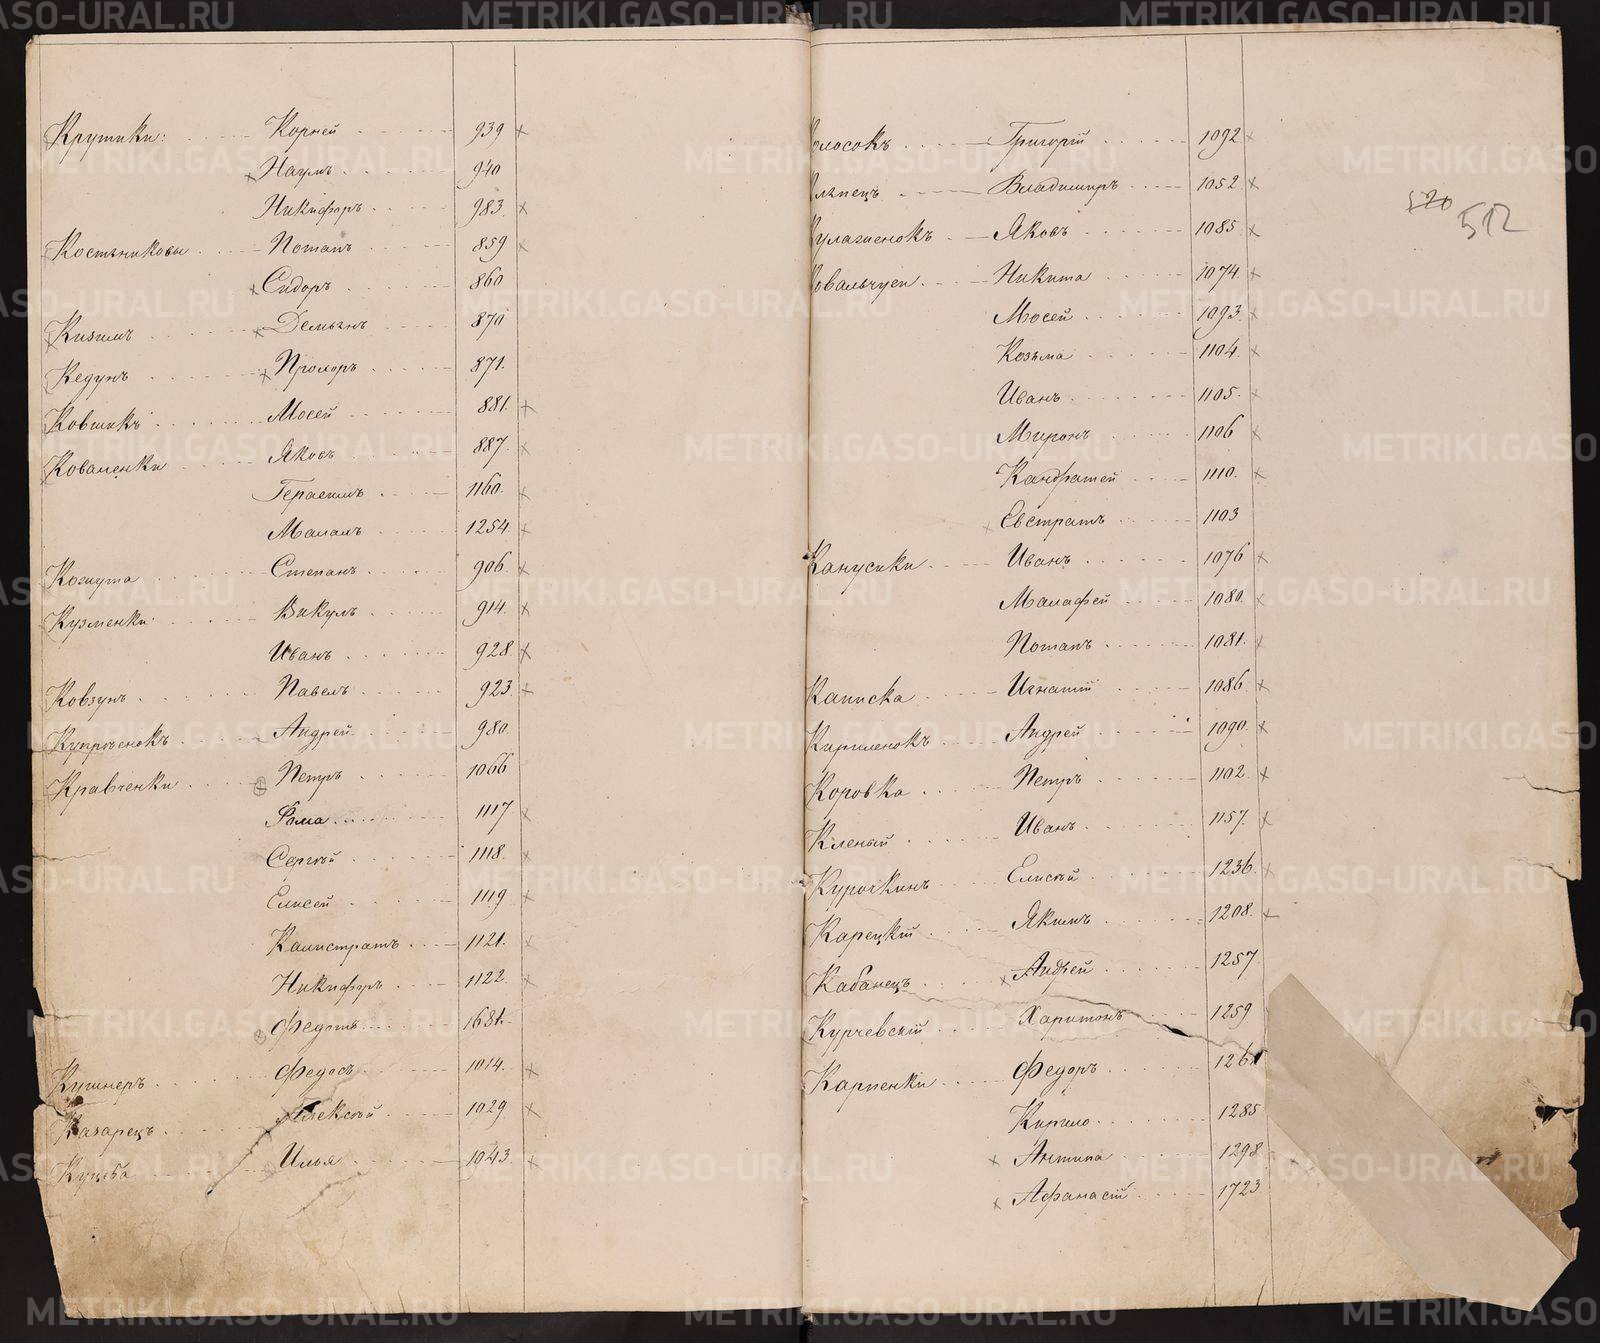 Крутики: Корней 939
Наумъ 940
Никифоръ 983
Костяниковы Потапъ 859
Сидоръ 860
Кизимъ Демьянъ 870
Кедунъ Прохоръ 871.
Ковшикъ Мосей 881.
Коваленки Яковъ 887.
Герасимъ 1160.
Малахъ 1254
Кошута Степанъ 906.
Кузменки Викулъ 914.
Иванъ 928.
Ковзунъ Павелъ 923.
Купріенокъ Андрей 980.
Кравченки Петръ 1066
Фома 1117
Сергѣй 1118.
Елисей 1119
Калистратъ 1121.
Никифоръ 1122.
Федотъ 1681.
Кушнеръ Федосъ 1014.
Казарецъ Алексѣй 1029
Куцеба Илья 1043
олосокъ Григорій 1092
Владиміръ 1052
улагченокъ Яковъ 1085
овальчуки Никита 1074.
Мосей 1093
Козьма 1104.
Иванъ 1105.
Миронъ 1106
Кандратей 1110.
Евстратъ 1103
Канусики Иванъ 1076
Малафей 1080.
Потапъ 1081.
Каписка Игнатій 1086.
Кириленокъ Андрей 1090.
Коровка Петръ 1102.
Кленый Иванъ 1157.
Курочкинъ Елисѣй 1236.
Карецкій Якимъ 1208.
Кабанецъ Андрей 1257
Курчевскій Харитонъ 1259
Карпенки Федоръ 126
Кирило 1285
Антипа 1298
Афанасій 1723
520
512
METRIKI.GASO-URAL.RU